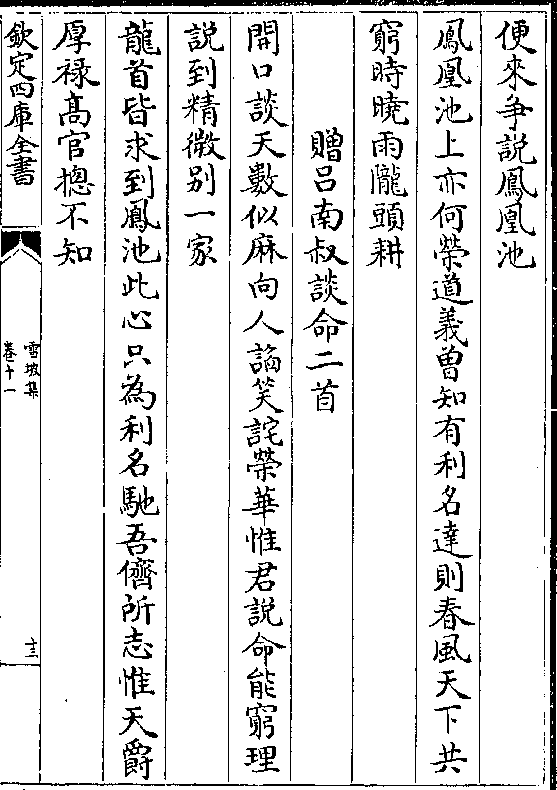 便來爭説鳳凰池
鳳凰池上亦何榮道義曽知有利名達則春風天下共
窮時曉雨隴頭耕
贈吕南叔談命二首
開口談天數似麻向人謟笑詫榮華惟君説命能窮理
説到精微别一家
龍首皆求到鳳池此心只為利名馳吾儕所志惟天爵
厚禄髙官摠不知
欽定四庫全書
雪坡集
卷十一
十三